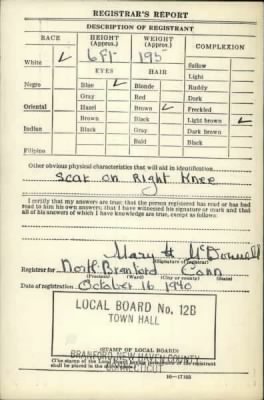 REGISTRAR'S REPORT
DESCRIPTION OF REGISTRANT
RACE HEIGHT (Approx.) WEIGHT (Approx.) COMPLEXION
White ✓ 6ft 195 Sallow
EYES HAIR Light
Negro Blue ✓ Blonde Ruddy
Gray Red Dark
Oriental Hazel Brown ✓ Freckled
Brown Black Light brown ✓
Indian Black Gray Dark brown
Bald Black
Filipino
Other obvious physical characteristics that will aid in identification
Scar on Right Knee
I certify that my answers are true; that the person registered has read or has had
read to him his own answers; that I have witnessed his signature or mark and that
all of his answers of which I have knowledge are true, except as follows:
Mary H. McDonnell
(Signature of registrar)
Registrar for North Branford Conn
(Precinct) (Ward) (City or county) (State)
Date of registration October 16 1940
LOCAL BOARD No. 12B
TOWN HALL
(STAMP OF LOCAL BOARD)
BRANFORD, NEW HAVEN COUNTY
(The stamp of the Local Board of the registrant
shall be placed in the
16—17105